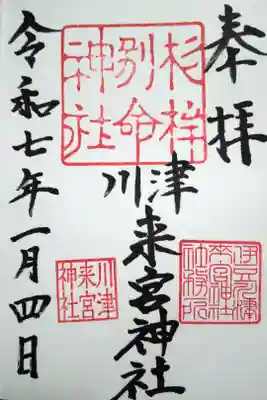 奉拝
杉桙
別命
神社
川津
来宮神社
川津
来宮
神社
令和七年一月四日